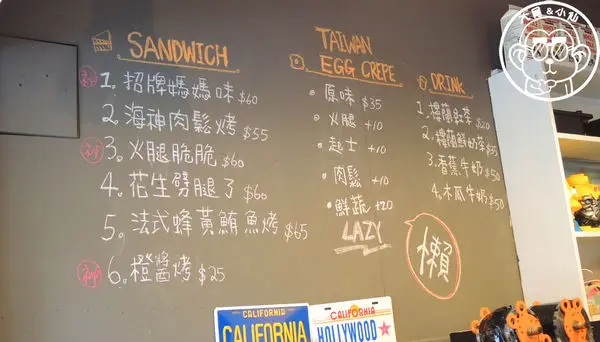 SANDWICH
1. 招牌媽媽味 $60
2 海神肉鬆烤 $55
3. 火腿脆脆 $60
4. 花生劈腿了 $60
5. 法式蜂黃鮪魚烤 $65
6. 橙醬烤 $25
TAIWAN
EGG CREPE
• 原味 $35
• 火腿 +10
• 起士 +10
• 肉鬆 +10
• 鮮蔬 +20
LAZY
懶
DRINK
1. 樓蘭紅茶 $20
2. 樓蘭鮮奶茶 $35
3. 香蕉牛奶 $50
4. 木瓜牛奶 $50
CALIFORNIA
CALIFORNIA
CALIFORNIA
HOLLYWOOD